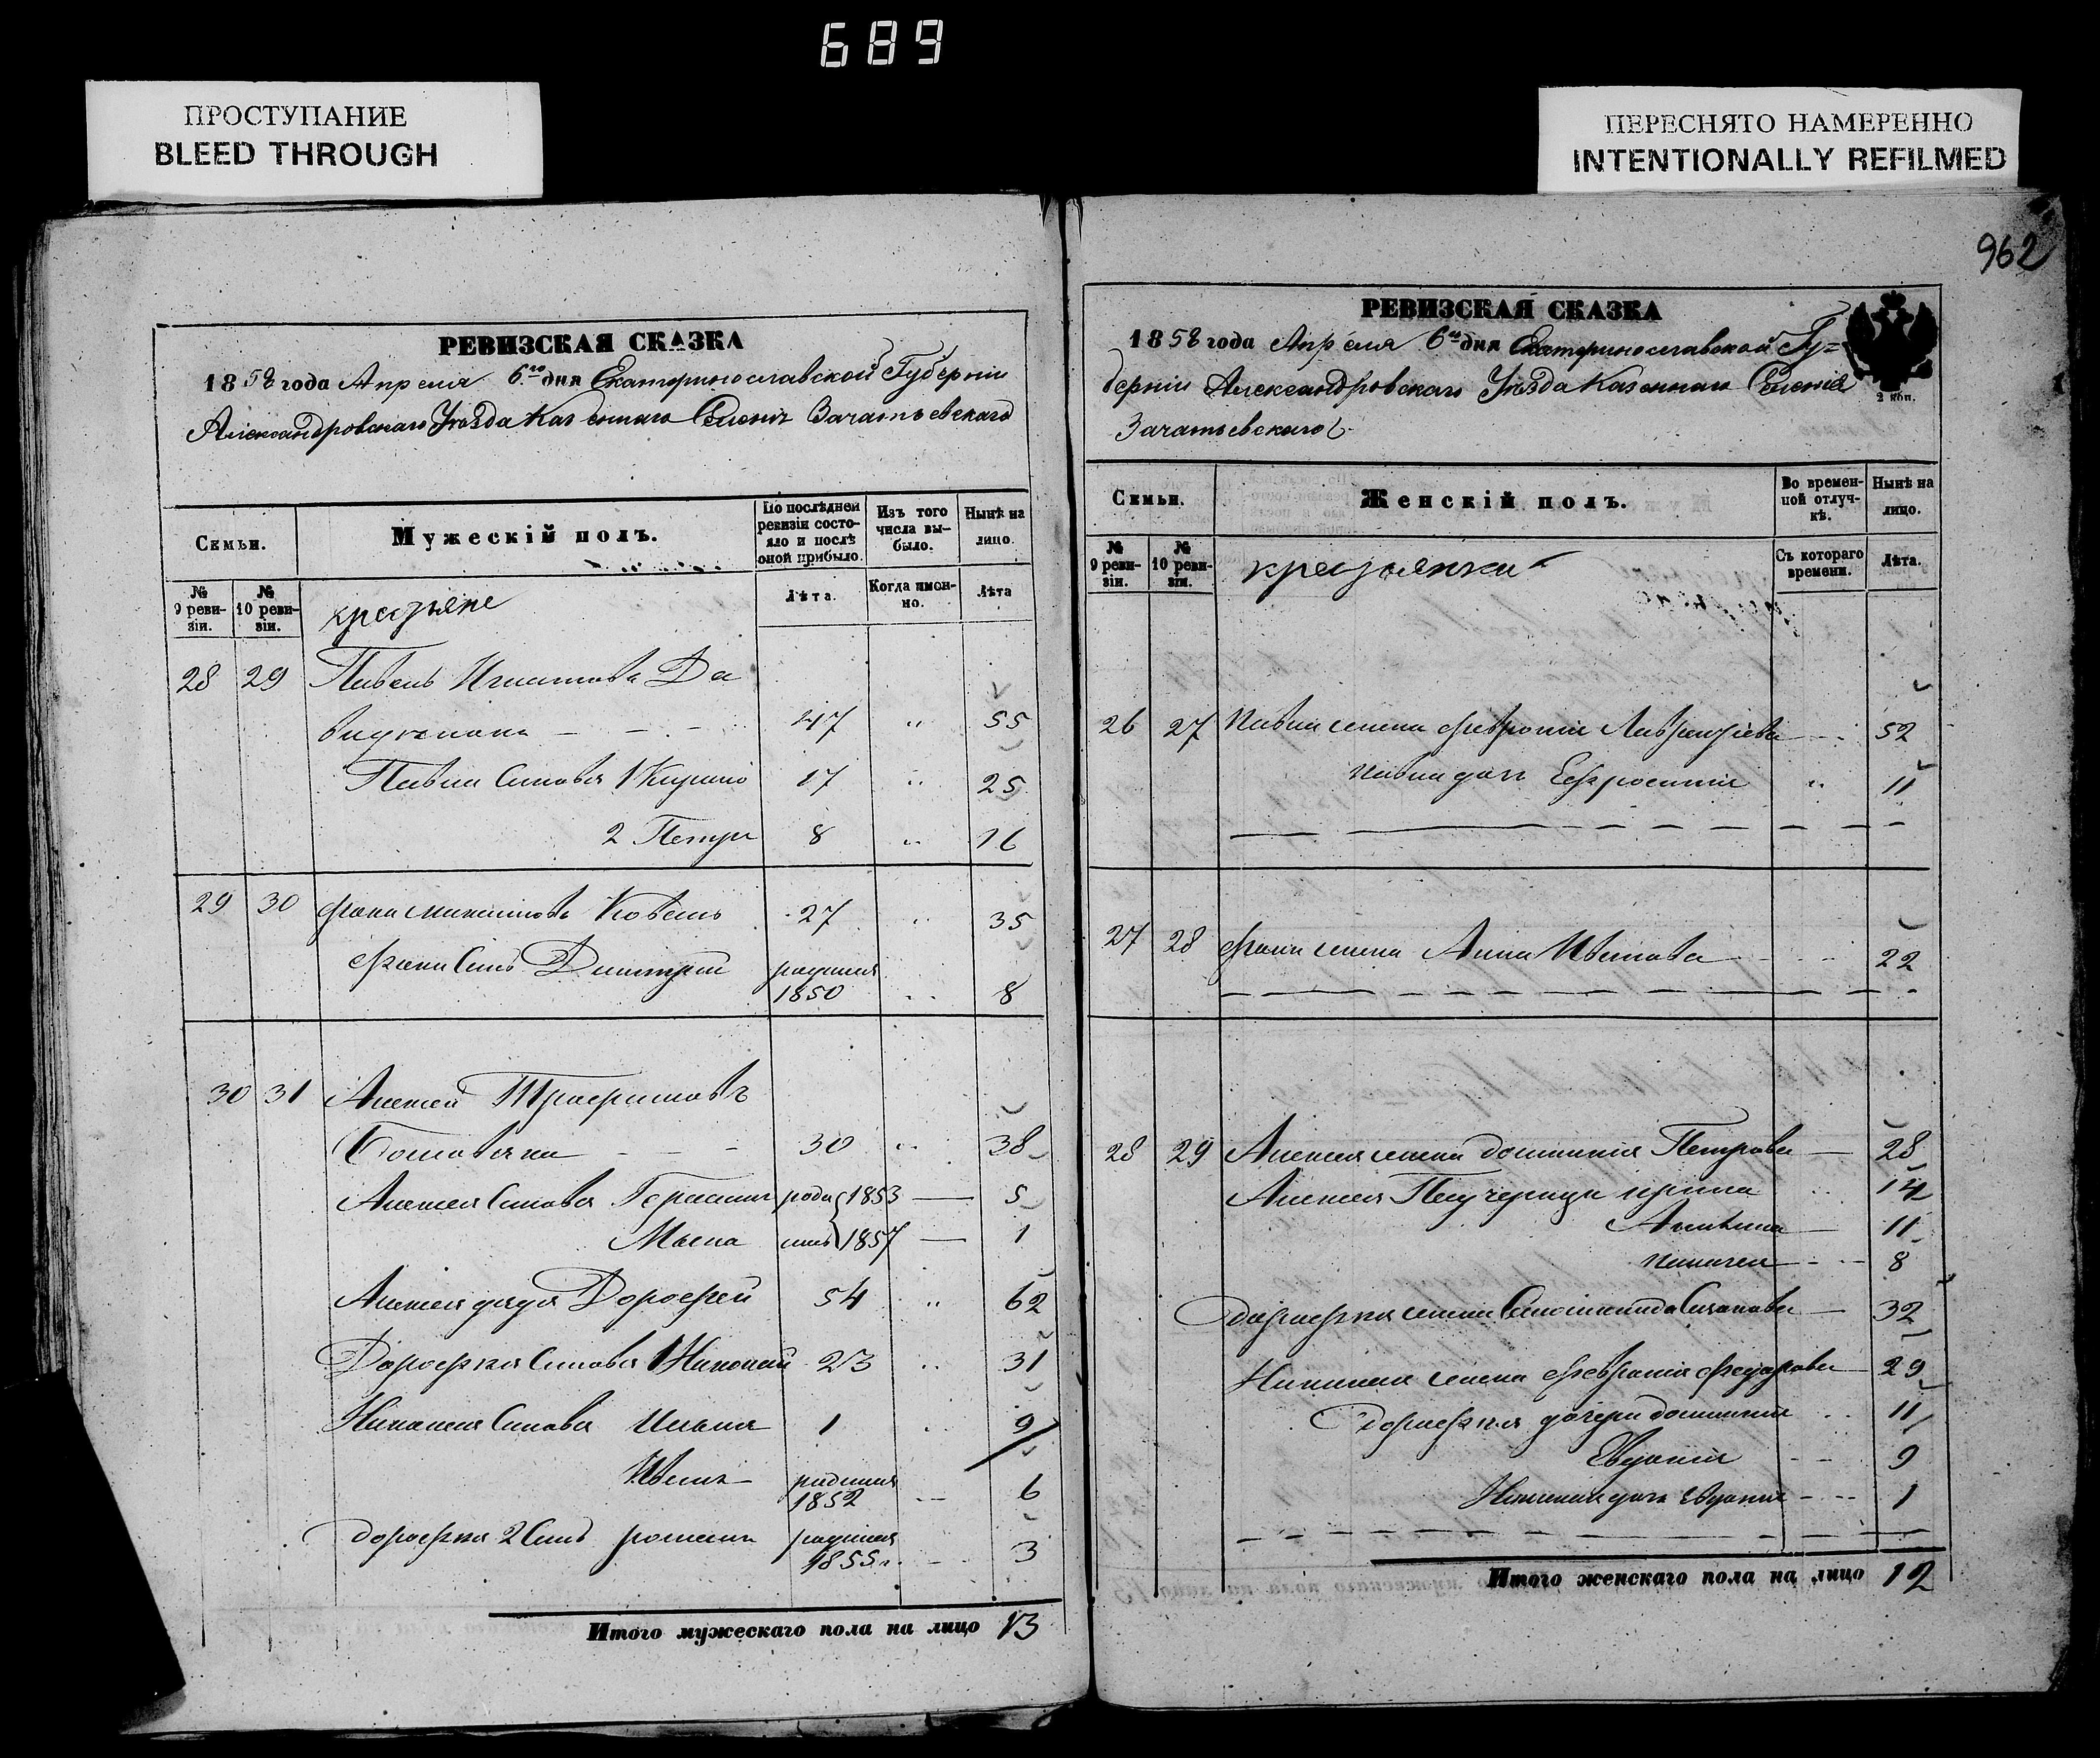 689
ПРОСТУПАНИЕ
BLEED THROUGH
ПЕРЕСНЯТО НАМЕРЕННО
INTENTIONALLY REFILMED
РЕВИЗСКАЯ СКАЗКА
1858 года Апреля 6го дня Екатеринославской Губерніи
Александровскаго Уѣзда Казеннаго Селенія Зачатьевскаго
Семьи.
Мужескій полъ.
По послѣдней ревизіи состо-
яло и послѣ
оной прибыло.
Изъ того
числа вы-
было.
Нынѣ на
лицо.
№
9 реви-
зіи.
№
10 реви-
зіи.
крестьяне
Лѣта.
Когда имен-
но.
Лѣта
28 29 Павелъ Игнатовъ Да
47 " 55
Павла Сыновья 1 Кирило 17 " 25
2 Петръ 8 " 16
29 30 Фома 27 " 35
Фомы Сынъ Дмитрій родился
1850 " 8
30 31 Алексей Трофимовъ
30 " 38
Алексея Сыновья Герасимъ роди 1853 — 5
лись 1857 — 1
Алексея дядя Дорофей 54 " 62
Дорофея Сыновья 1 Николай 23 " 31
Николая Сыновья Илья 1 " 9
Иванъ родился
1852 — 6
Дорофея 2 Сынъ Романъ родился
1855 г. — 3
Итого мужескаго пола на лицо 13
962
РЕВИЗСКАЯ СКАЗКА
1858 года Апреля 6го дня Екатеринославской Гу=
берніи Александровскаго Уѣзда Казеннаго Селенія
2 коп.
Зачатьевскаго
Семьи.
Женскій полъ.
Во времен-
ной отлуч-
кѣ.
Нынѣ на
лицо.
№
9 реви-
зіи.
№
10 реви-
зіи.
крестьянки
Съ котораго
времени.
Лѣта.
26 27 Павла жена Февронія Лаврентіева 52
Павла дочь Ефросинія " 11
27 28 Фомы жена Анна Иванова 22
28 29 Алексея жена Домникія Петрова — 28
Алексея Ирина 14
11
8
Дорофея жена 32
Николая жена Февронія Федорова 29
Дорофея дочери Домникія 11
Евдокія 9
Николая дочь Евдокія 1
Итого женскаго пола на лицо 12